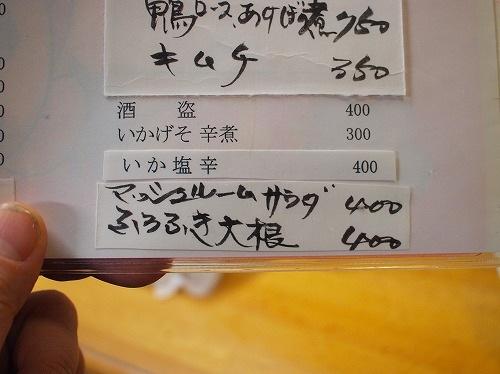 鴨ロース、あけぼの煮 750
キムチ 350
酒 盗 400
いかげそ 辛煮 300
いか 塩 辛 400
マッシュルームサラダ 400
ふろふき大根 400